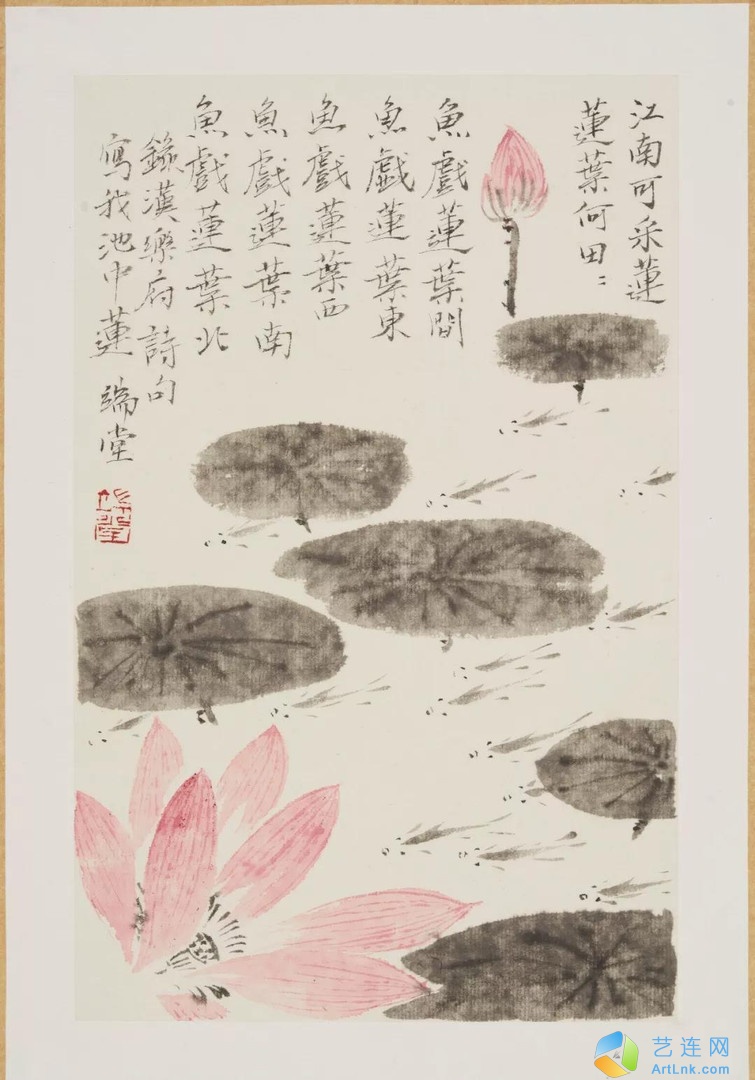 江南可采蓮
蓮葉何田〻
魚戲蓮葉間
魚戲蓮葉東
魚戲蓮葉西
魚戲蓮葉南
魚戲蓮葉北
錄漢樂府詩句
寫我池中蓮 端堂
艺连网
ArtLnk.com